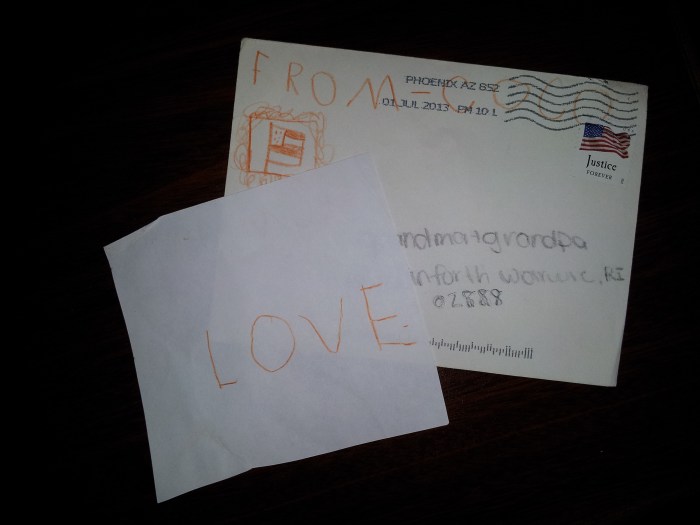 FROM-COCO
PHOENIX AZ 852
01 JUL 2013 PM 10 L
Justice
FOREVER
ndma+grandpa
nforth Warwic, RI
02888
LOVE